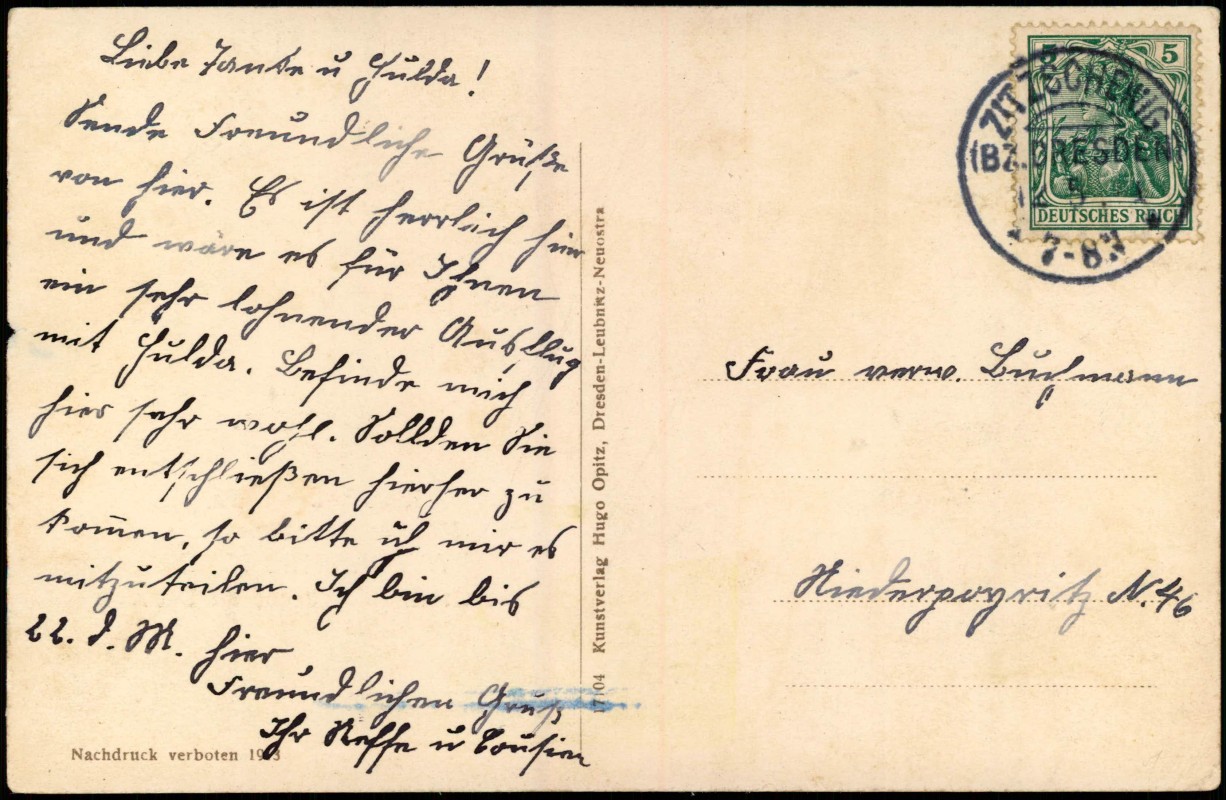 Liebe Tante u Hulda!
Sende Freundliche Grüße
von hier. Es ist herrlich hier
und wäre es für Ihnen
ein sehr lohnender Ausflug
mit Hulda. Befinde mich
hier sehr wohl. Sollden Sie
sich entschließen hierher zu
kom̄en, so bitte ich mir es
mitzuteilen. Ich bin bis
22. d. M. hier
Freundlichen Gruß
Ihr Neffe u Cousin
Nachdruck verboten
Kunstverlag Hugo Opitz, Dresden-Leubnitz-Neuostra
5 5
DEUTSCHES REICH
ZITZSCHEWIG
(BZ. DRESDEN)
7-8V
Frau verw. Buchmann
Niederpoyritz N. 46